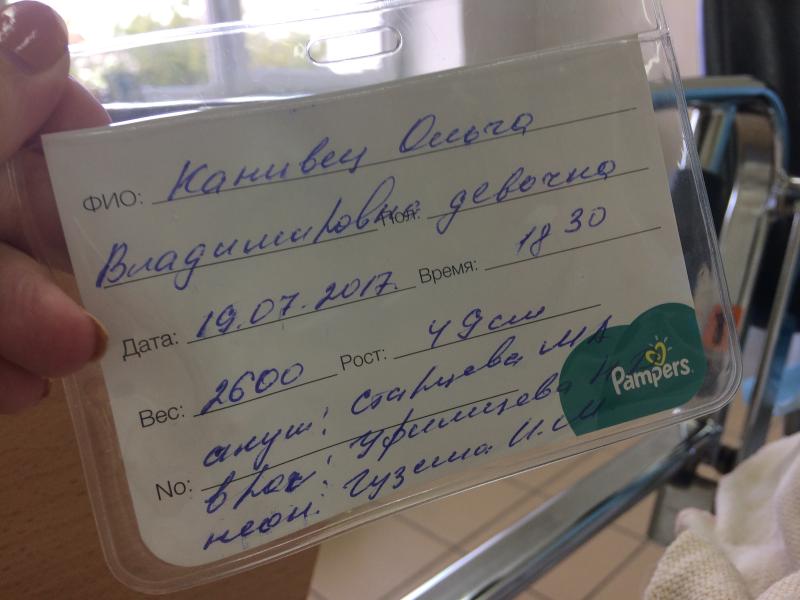 ФИО: Канивец Ольга
Владимировна Пол: девочка
Дата: 19.07.2017. Время: 18 30
Вес: 2600 Рост: 49см
акуш: Старцева МА
No: врач: Уфимцева
неон: Гузема И.М
Pampers